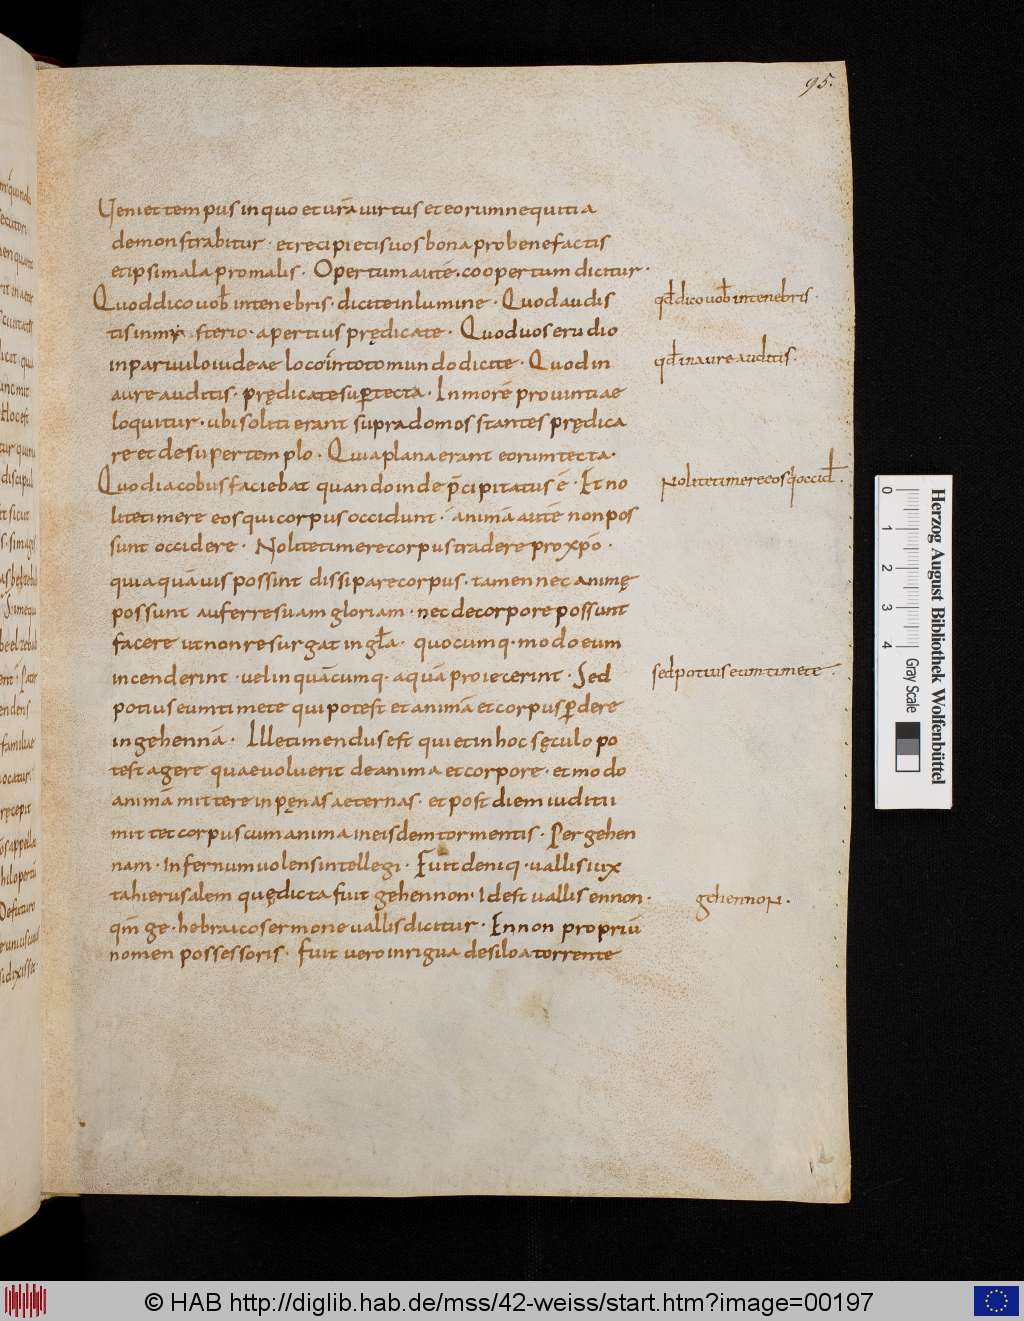 95.
Ueniet tempus in quo et urā uirtus et eorum nequitia
demonstrabitur · et recipietis uos bona pro benefactis
et ipsi mala pro malis · Opertum autē · coopertum dicitur ·
Quod dico uob̄ in tenebris · dicite in lumine · Quod audis
tis in my sterio · apertius prędicate · Quod uos erudio
in paruulo iudeae loco in toto mundo dicite · Quod in
aure auditis · prędicate sup̄ tecta · In morē prouintiae
loquitur · ubi soliti erant supra domos stantes prędica
re et desuper templo · Quia plana erant eorum tecta ·
Quod iacobus faciebat quando inde p̄cipitatus ē · Et no
lite timere eos qui corpus occidunt · animā autē non pos
sunt occidere · Nolite timere corpus tradere pro xp̄o ·
quia quāuis possint dissipare corpus · tamen nec animę
possunt auferre suam gloriam · nec de corpore possunt
facere ut non resurgat in gl̄a · quocumq · modo eum
incenderint · uel in quācumq · aquā proiecerint · Sed
potius eum timete qui potest et animā et corpus p̄dere
in gehennā · Ille timendus est qui et in hoc sęculo po
test agere quae uoluerit de anima et corpore · et modo
animā mittere in pęnas aeternas · et post diem iuditii
mittet corpus cum anima in eisdem tormentis · Per gehen
nam · infernum uolens intellegi · Fuit deniq · uallis iux
ta hierusalem quę dicta fuit gehennon · Id est uallis ennon ·
qm̄ ge · hebraico sermone uallis dicitur · Ennon propriū
nomen possessoris · fuit uero inrigua de siloa torrente
qd̄ dico uob̄ in tenebris ·
qd̄ in aure auditis ·
Nolite timere eos q occid̄ ·
sed potius eum timete ·
gehennon ·
0 1 2 3 4
Gray Scale
Herzog August Bibliothek Wolfenbüttel
© HAB http://diglib.hab.de/mss/42-weiss/start.htm?image=00197